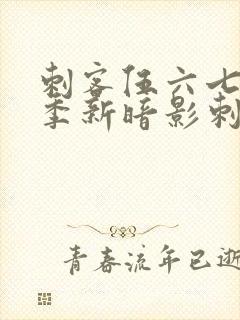 刺客伍六七
季新暗影刺
青春流年已逝